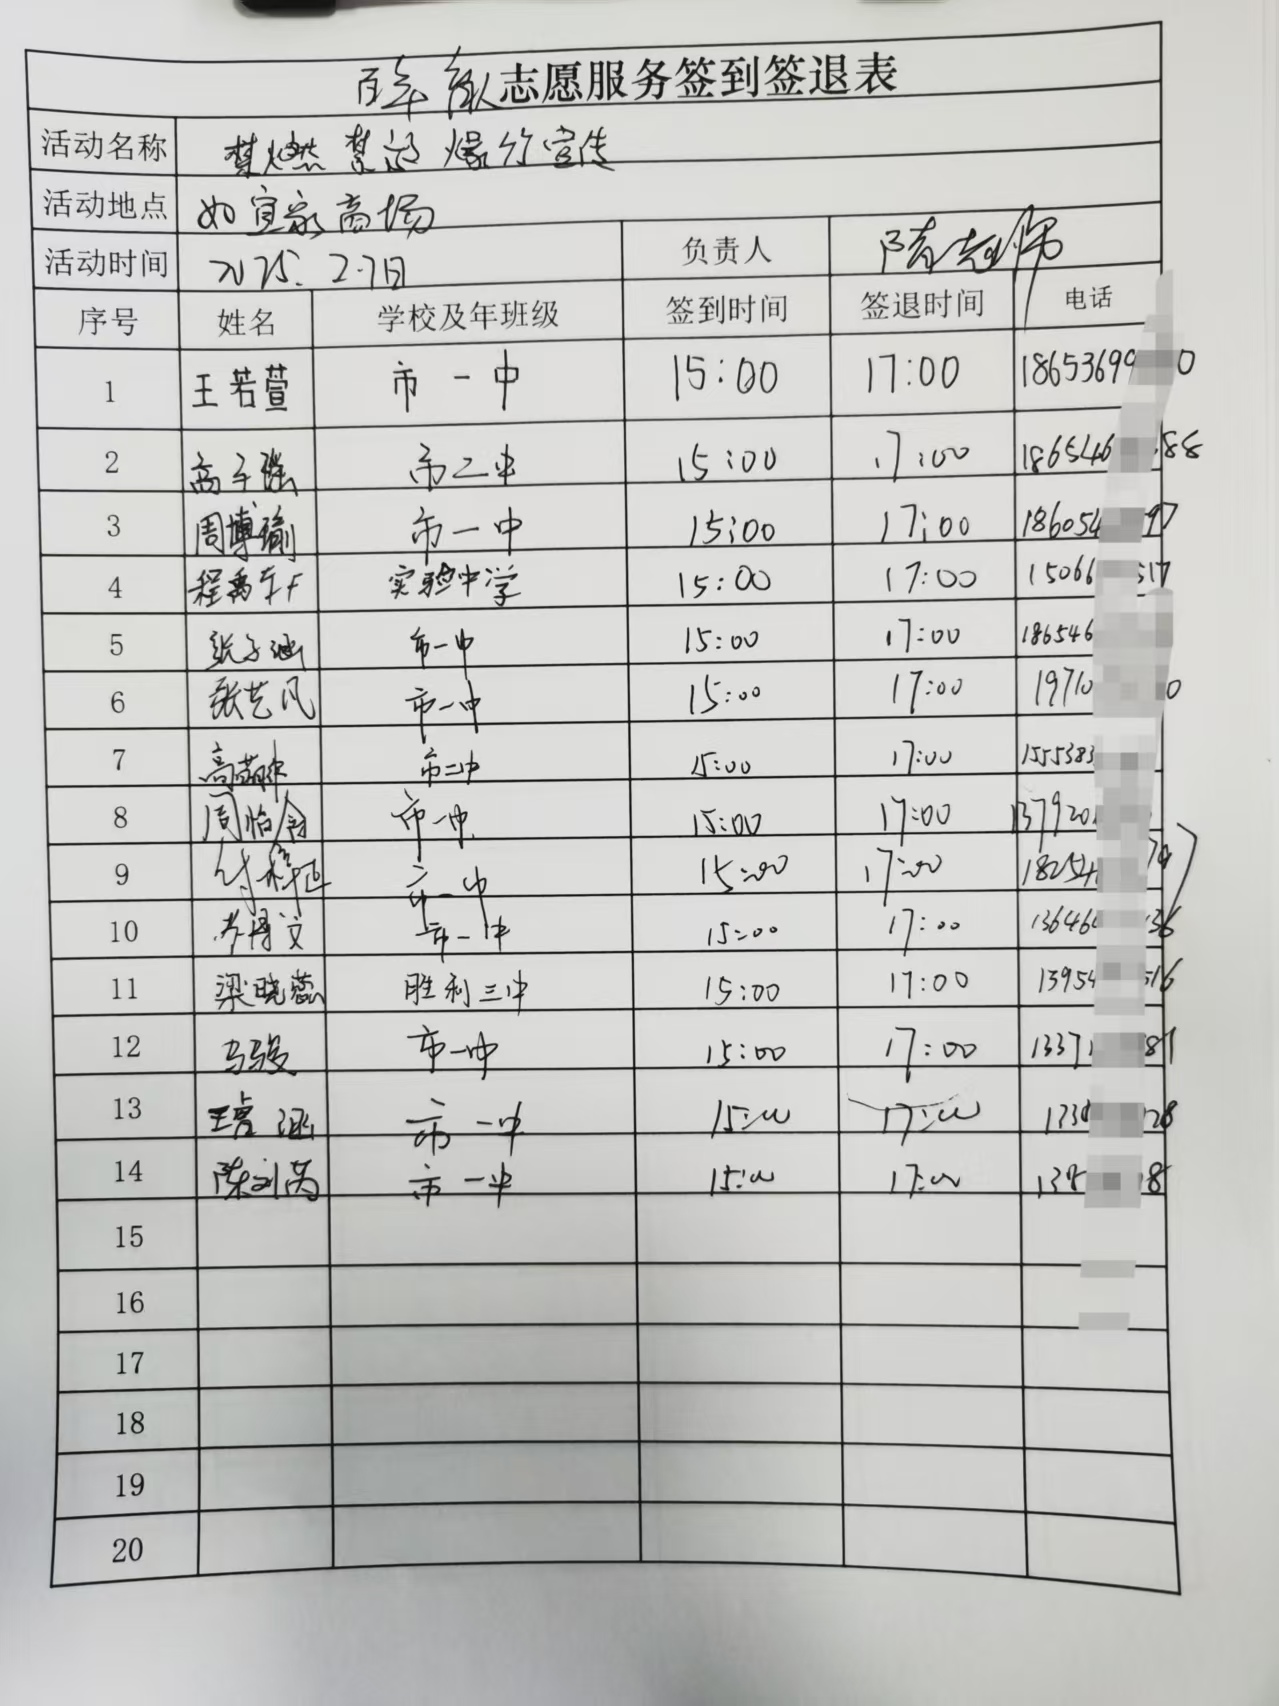 百年 志愿服务签到签退表
活动名称 禁燃禁放爆竹宣传
活动地点 如宜家商场
活动时间 2025.2.7日 负责人 隋老师
序号 姓名 学校及年班级 签到时间 签退时间 电话
1 王若萱 市一中 15:00 17:00 18653699 0
2 高子强 市二中 15:00 17:00 186546 88
3 周博瑜 市一中 15:00 17:00 186054 97
4 程禹 实验中学 15:00 17:00 15066 517
5 张子涵 市一中 15:00 17:00 186546
6 张艺凡 市一中 15:00 17:00 19710 0
7 高 市二中 15:00 17:00 155538
8 周怡含 市一中 15:00 17:00 137920
9 付梓 市一中 15:00 17:00 18254
10 博文 市一中 15:00 17:00 13646 36
11 梁晓蕊 胜利三中 15:00 17:00 13954 516
12 马骏 市一中 15:00 17:00 1337 81
13 涵 市一中 15:00 17:00 28
14 陈刘芮 市一中 15:00 17:00 8
15
16
17
18
19
20